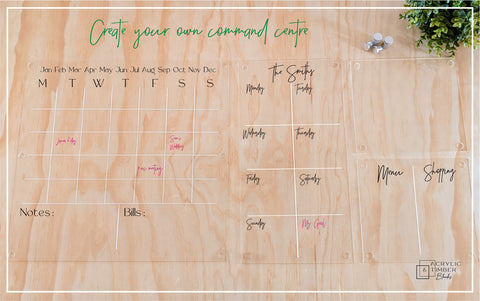 Create your own command centre
Jan Feb Mar Apr May Jun Jul Aug Sep Oct Nov Dec
M T W T F S S
Notes:
Bills:
The Smiths
Monday
Tuesday
Wednesday
Thursday
Friday
Saturday
Sunday
My Goal
Menu
Shopping
ACRYLIC
& TIMBER
Blanks